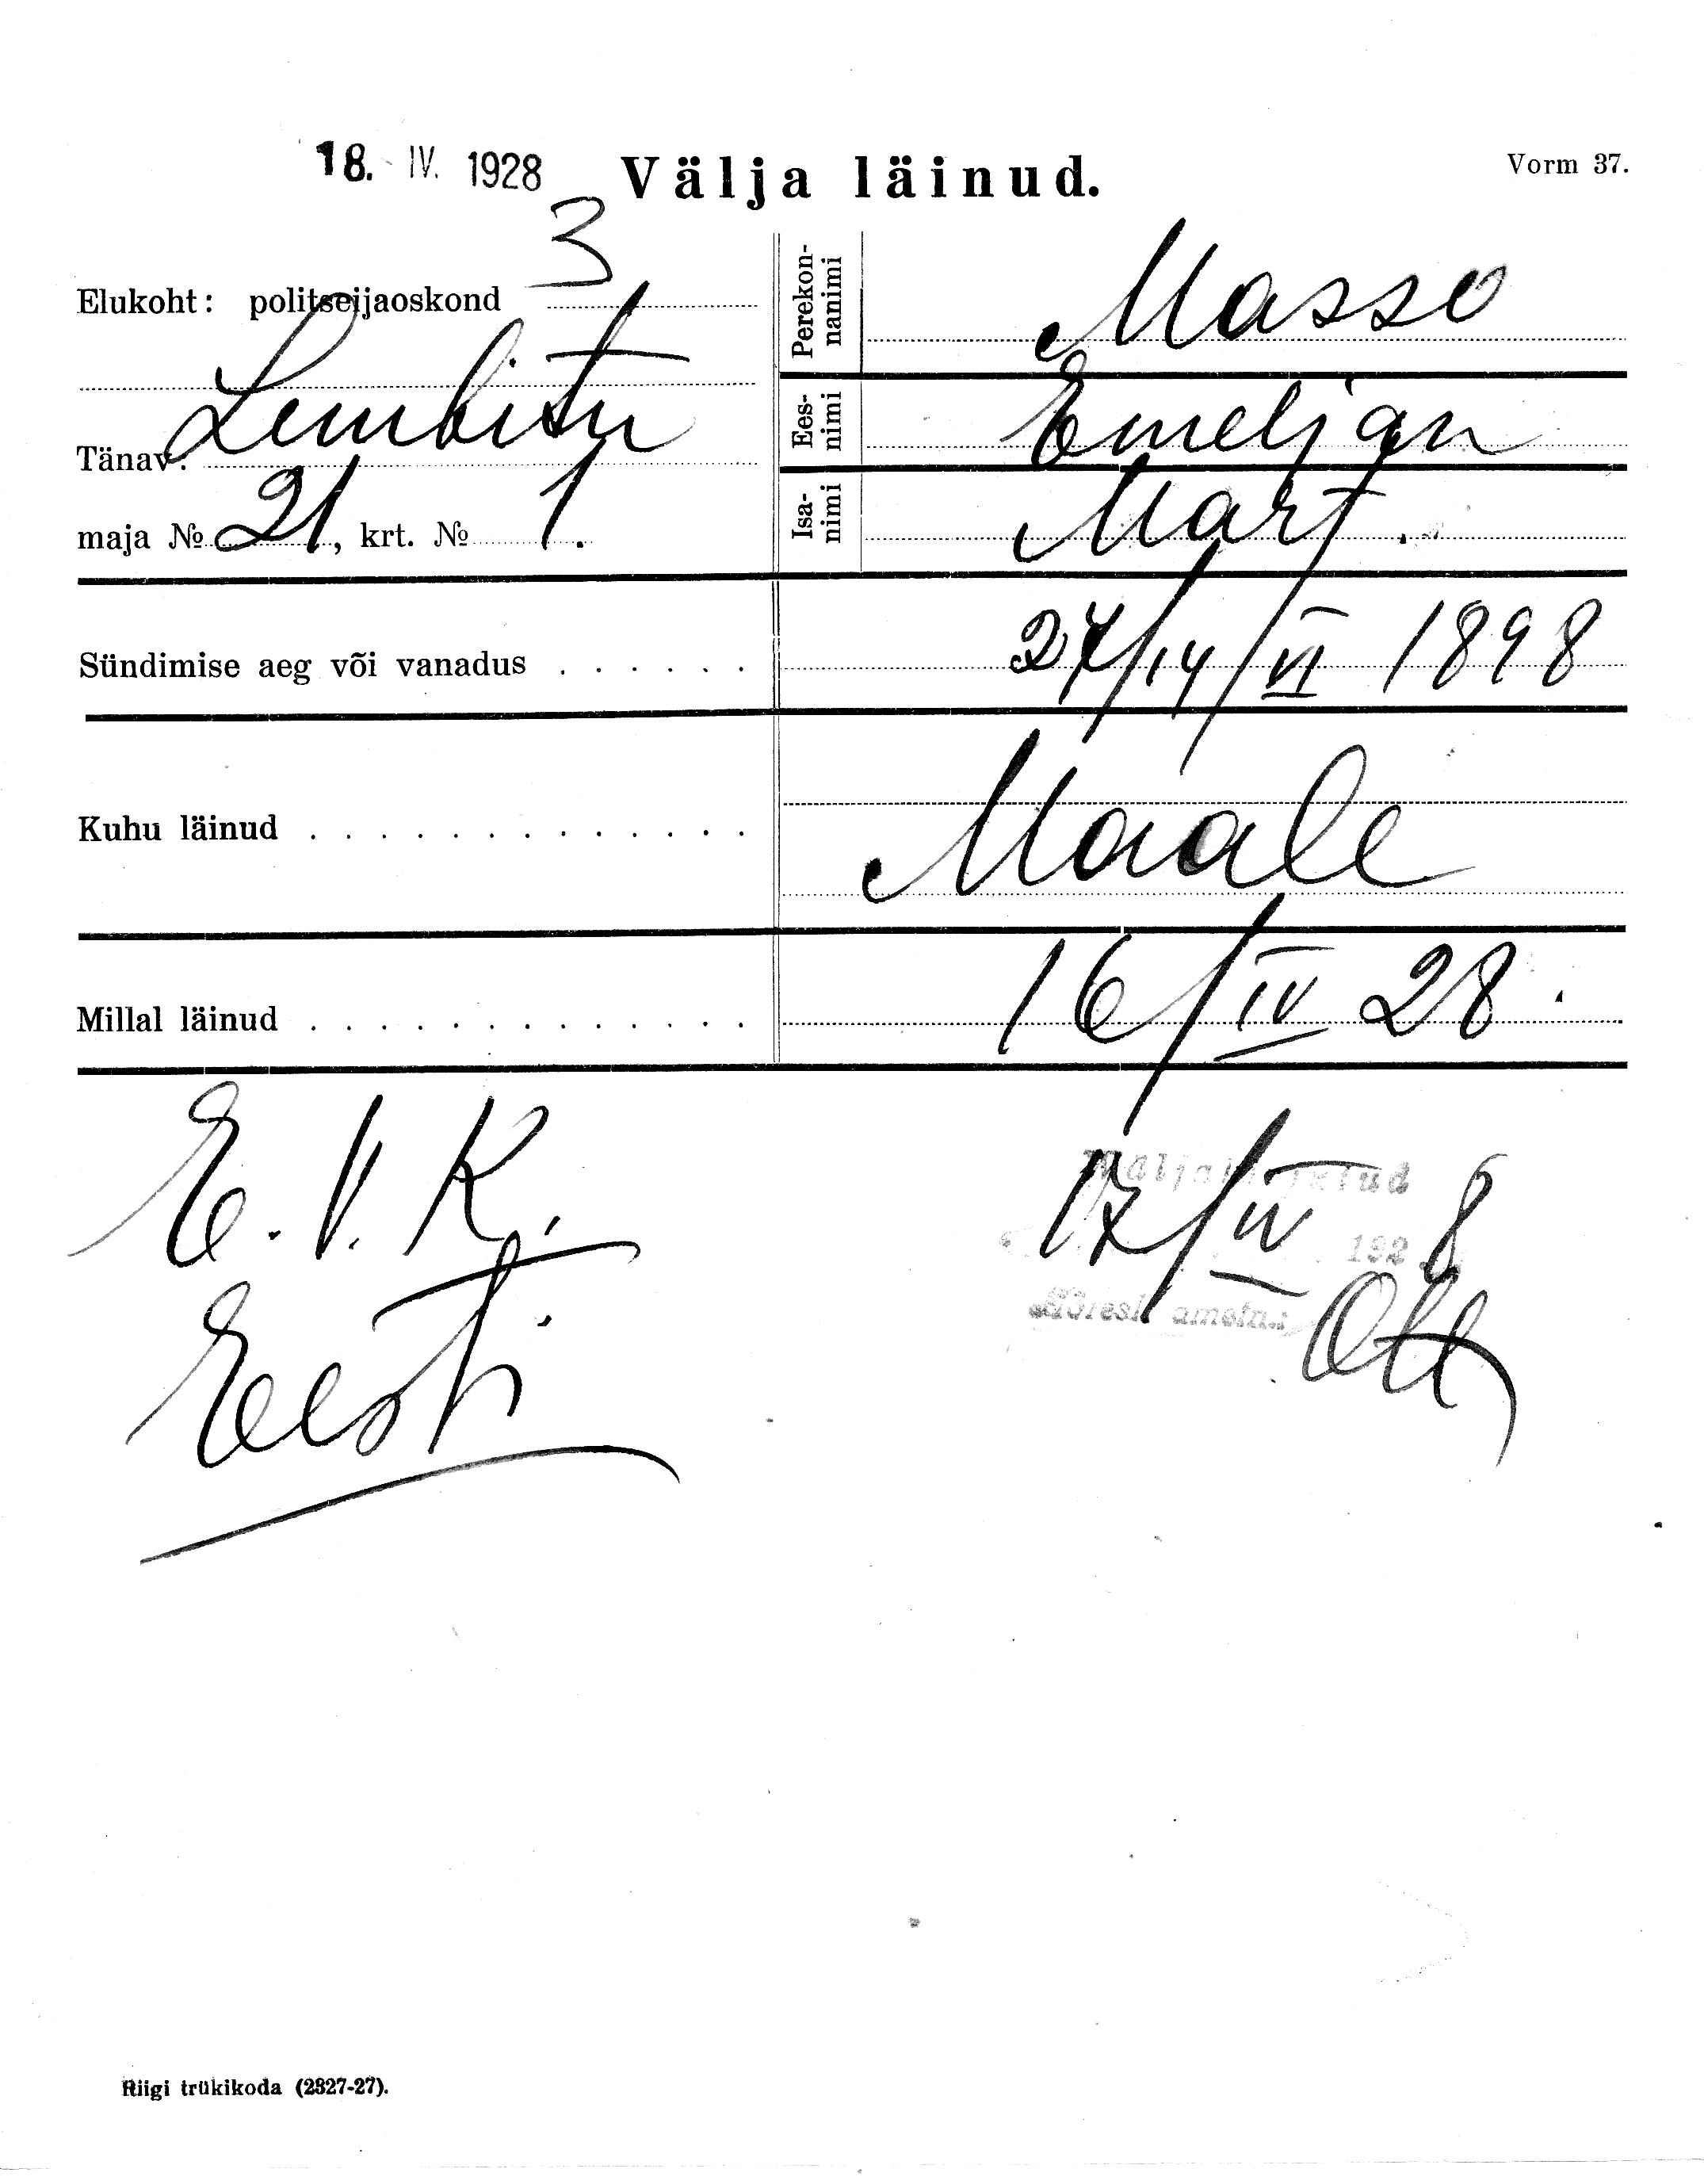 18. IV. 1928
Välja läinud.
Vorm 37.
Elukoht: politseijaoskond 3
Tänav: Lembitu
maja № 21, krt. № 1.
Perekon-
nanimi
Masso
Ees-
nimi
Emeljan
Isa-
nimi
Mart.
Sündimise aeg või vanadus . . . . . .
/14/VI 1898
Kuhu läinud . . . . . . . . . . . . .
Maale
Millal läinud . . . . . . . . . . . . .
16/IV 28.
E. V. K.
Eesti
17/IV 192 8
ametn.: Ott
Riigi trükikoda (2327-27).